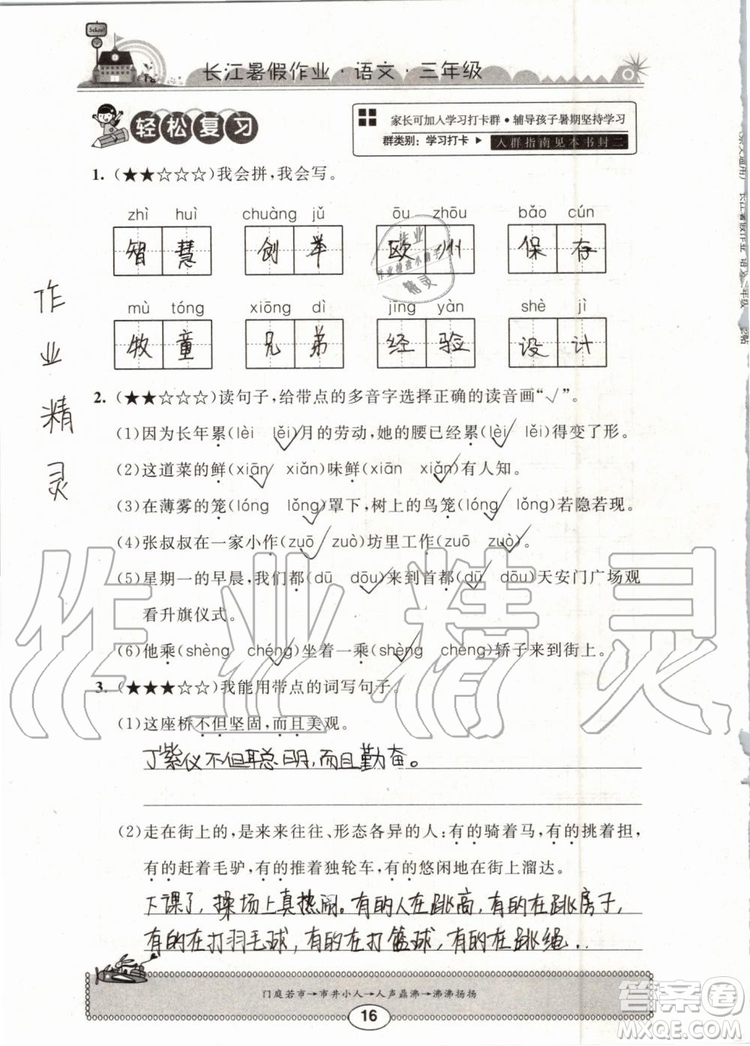 School
长江暑假作业·语文·三年级
轻松复习
家长可加入学习打卡群·辅导孩子暑期坚持学习
群类别：学习打卡 ▶ 入群指南见本书封二
1. (★★☆☆☆)我会拼，我会写。
zhì huì chuàng jǔ ōu zhōu bǎo cún
智慧 创举 欧州 保存
mù tóng xiōng dì jīng yàn shè jì
牧童 兄弟 经验 设计
作业精灵
2. (★★☆☆☆)读句子，给带点的多音字选择正确的读音画“√”。
(1)因为长年累(lèi lěi√)月的劳动，她的腰已经累(lèi√ lěi)得变了形。
(2)这道菜的鲜(xiān√ xiǎn)味鲜(xiān xiǎn√)有人知。
(3)在薄雾的笼(lóng lǒng√)罩下，树上的鸟笼(lóng√ lǒng)若隐若现。
(4)张叔叔在一家小作(zuō√ zuò)坊里工作(zuō zuò√)。
(5)星期一的早晨，我们都(dū dōu√)来到首都(dū√ dōu)天安门广场观
看升旗仪式。
(6)他乘(shèng chéng√)坐着一乘(shèng√ chéng)轿子来到街上。
3. (★★★☆☆)我能用带点的词写句子。
(1)这座桥不但坚固，而且美观。
丁紫仪不但聪明，而且勤奋。
(2)走在街上的，是来来往往、形态各异的人：有的骑着马，有的挑着担，
有的赶着毛驴，有的推着独轮车，有的悠闲地在街上溜达。
下课了，操场上真热闹。有的人在跳高，有的在跳房子，
有的在打羽毛球，有的在打篮球，有的在跳绳...
门庭若市→市井小人→人声鼎沸→沸沸扬扬
16
作业精灵
答案圈
MXQE.COM